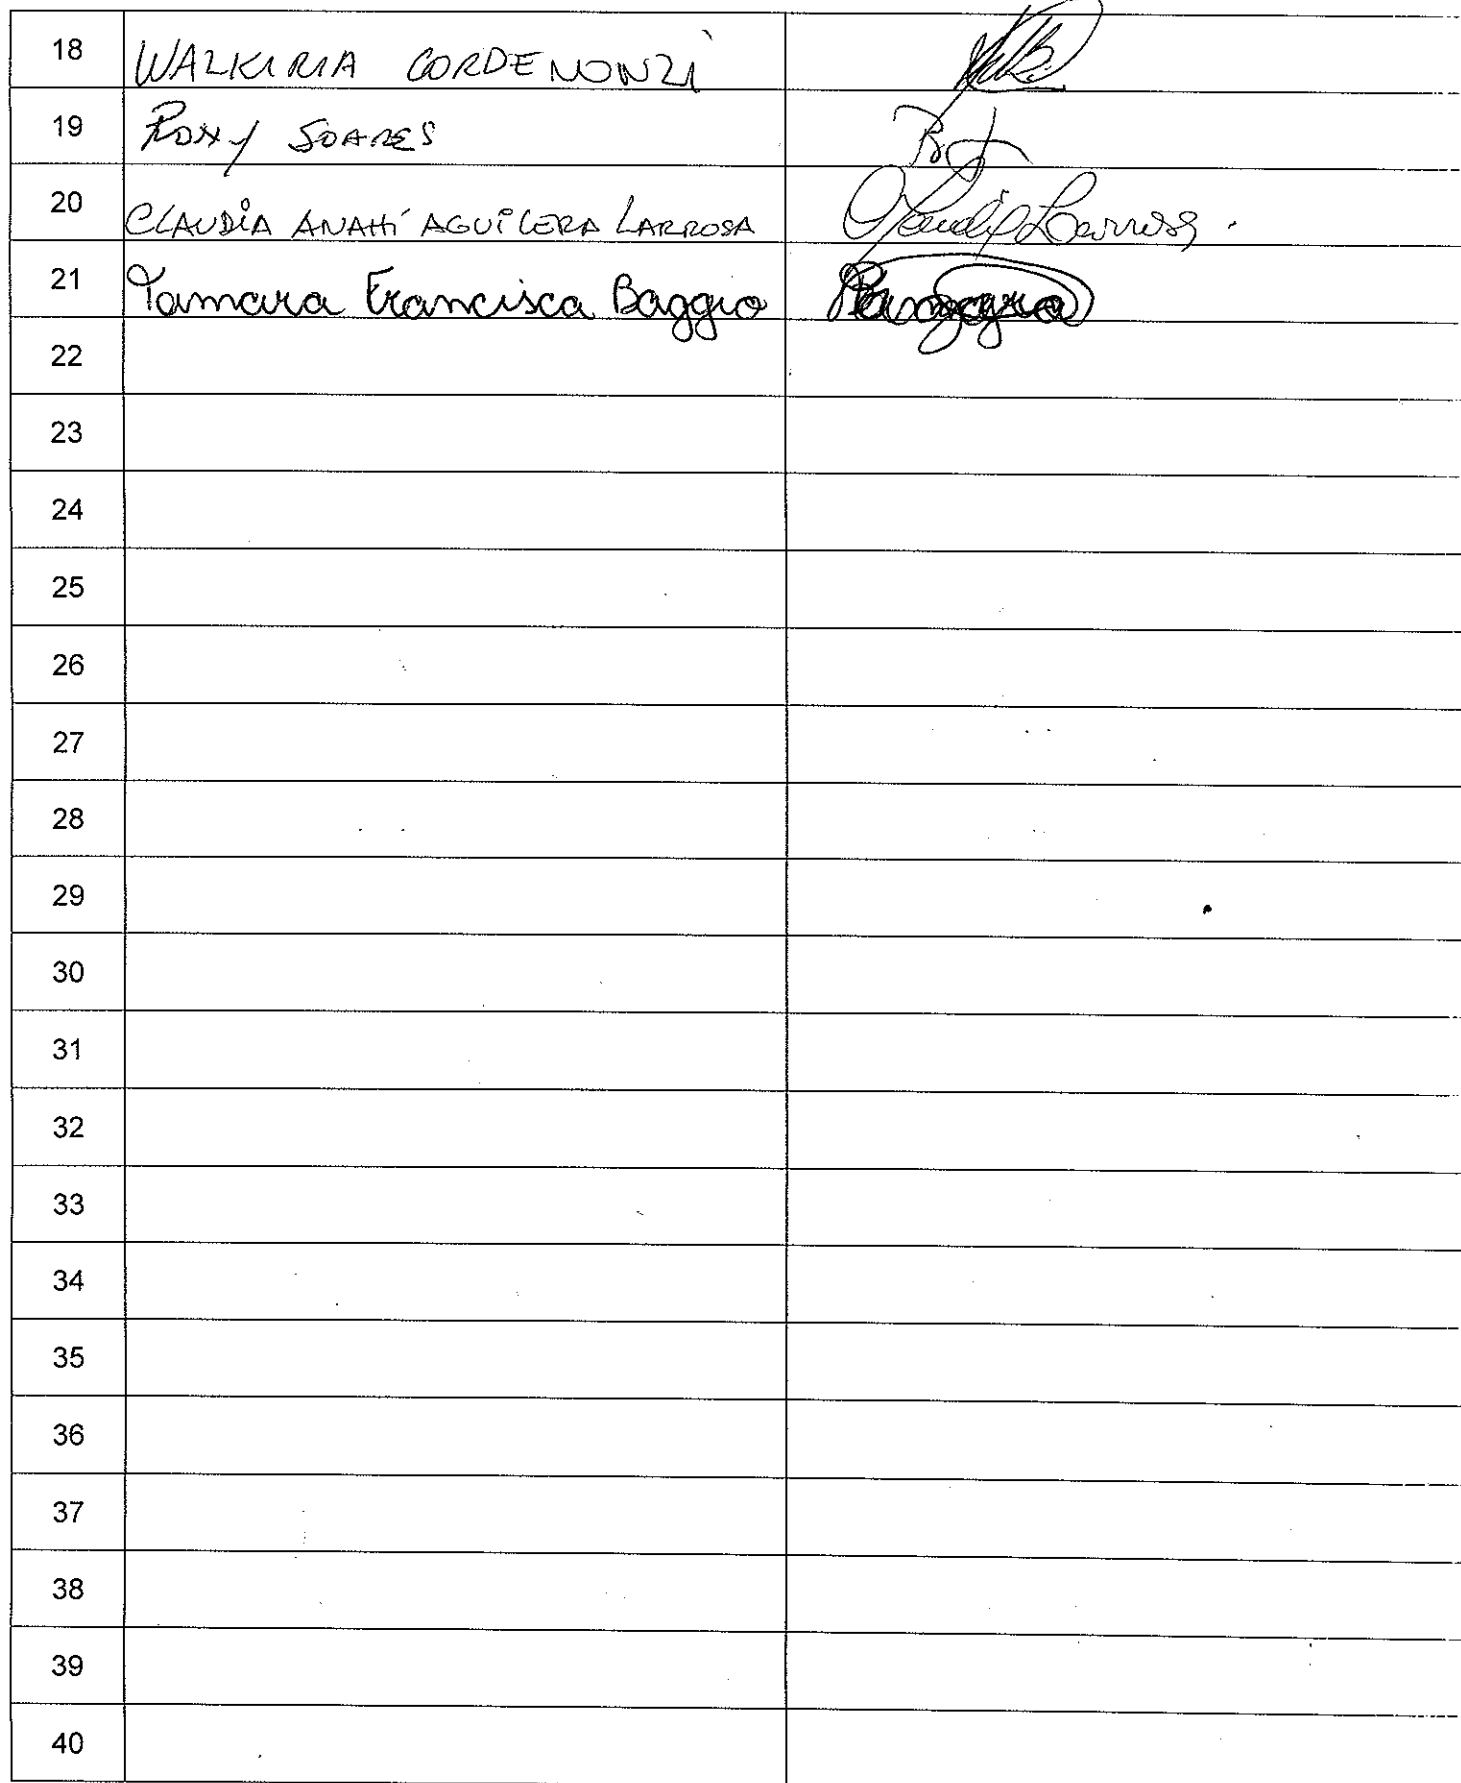 18 WALKIRIA CORDENONZI
19 ROXY SOARES
20 CLAUDIA ANAHÍ AGUILERA LARROSA Claudia Larrosa.
21 Tamara Francisca Baggio
22
23
24
25
26
27
28
29
30
31
32
33
34
35
36
37
38
39
40